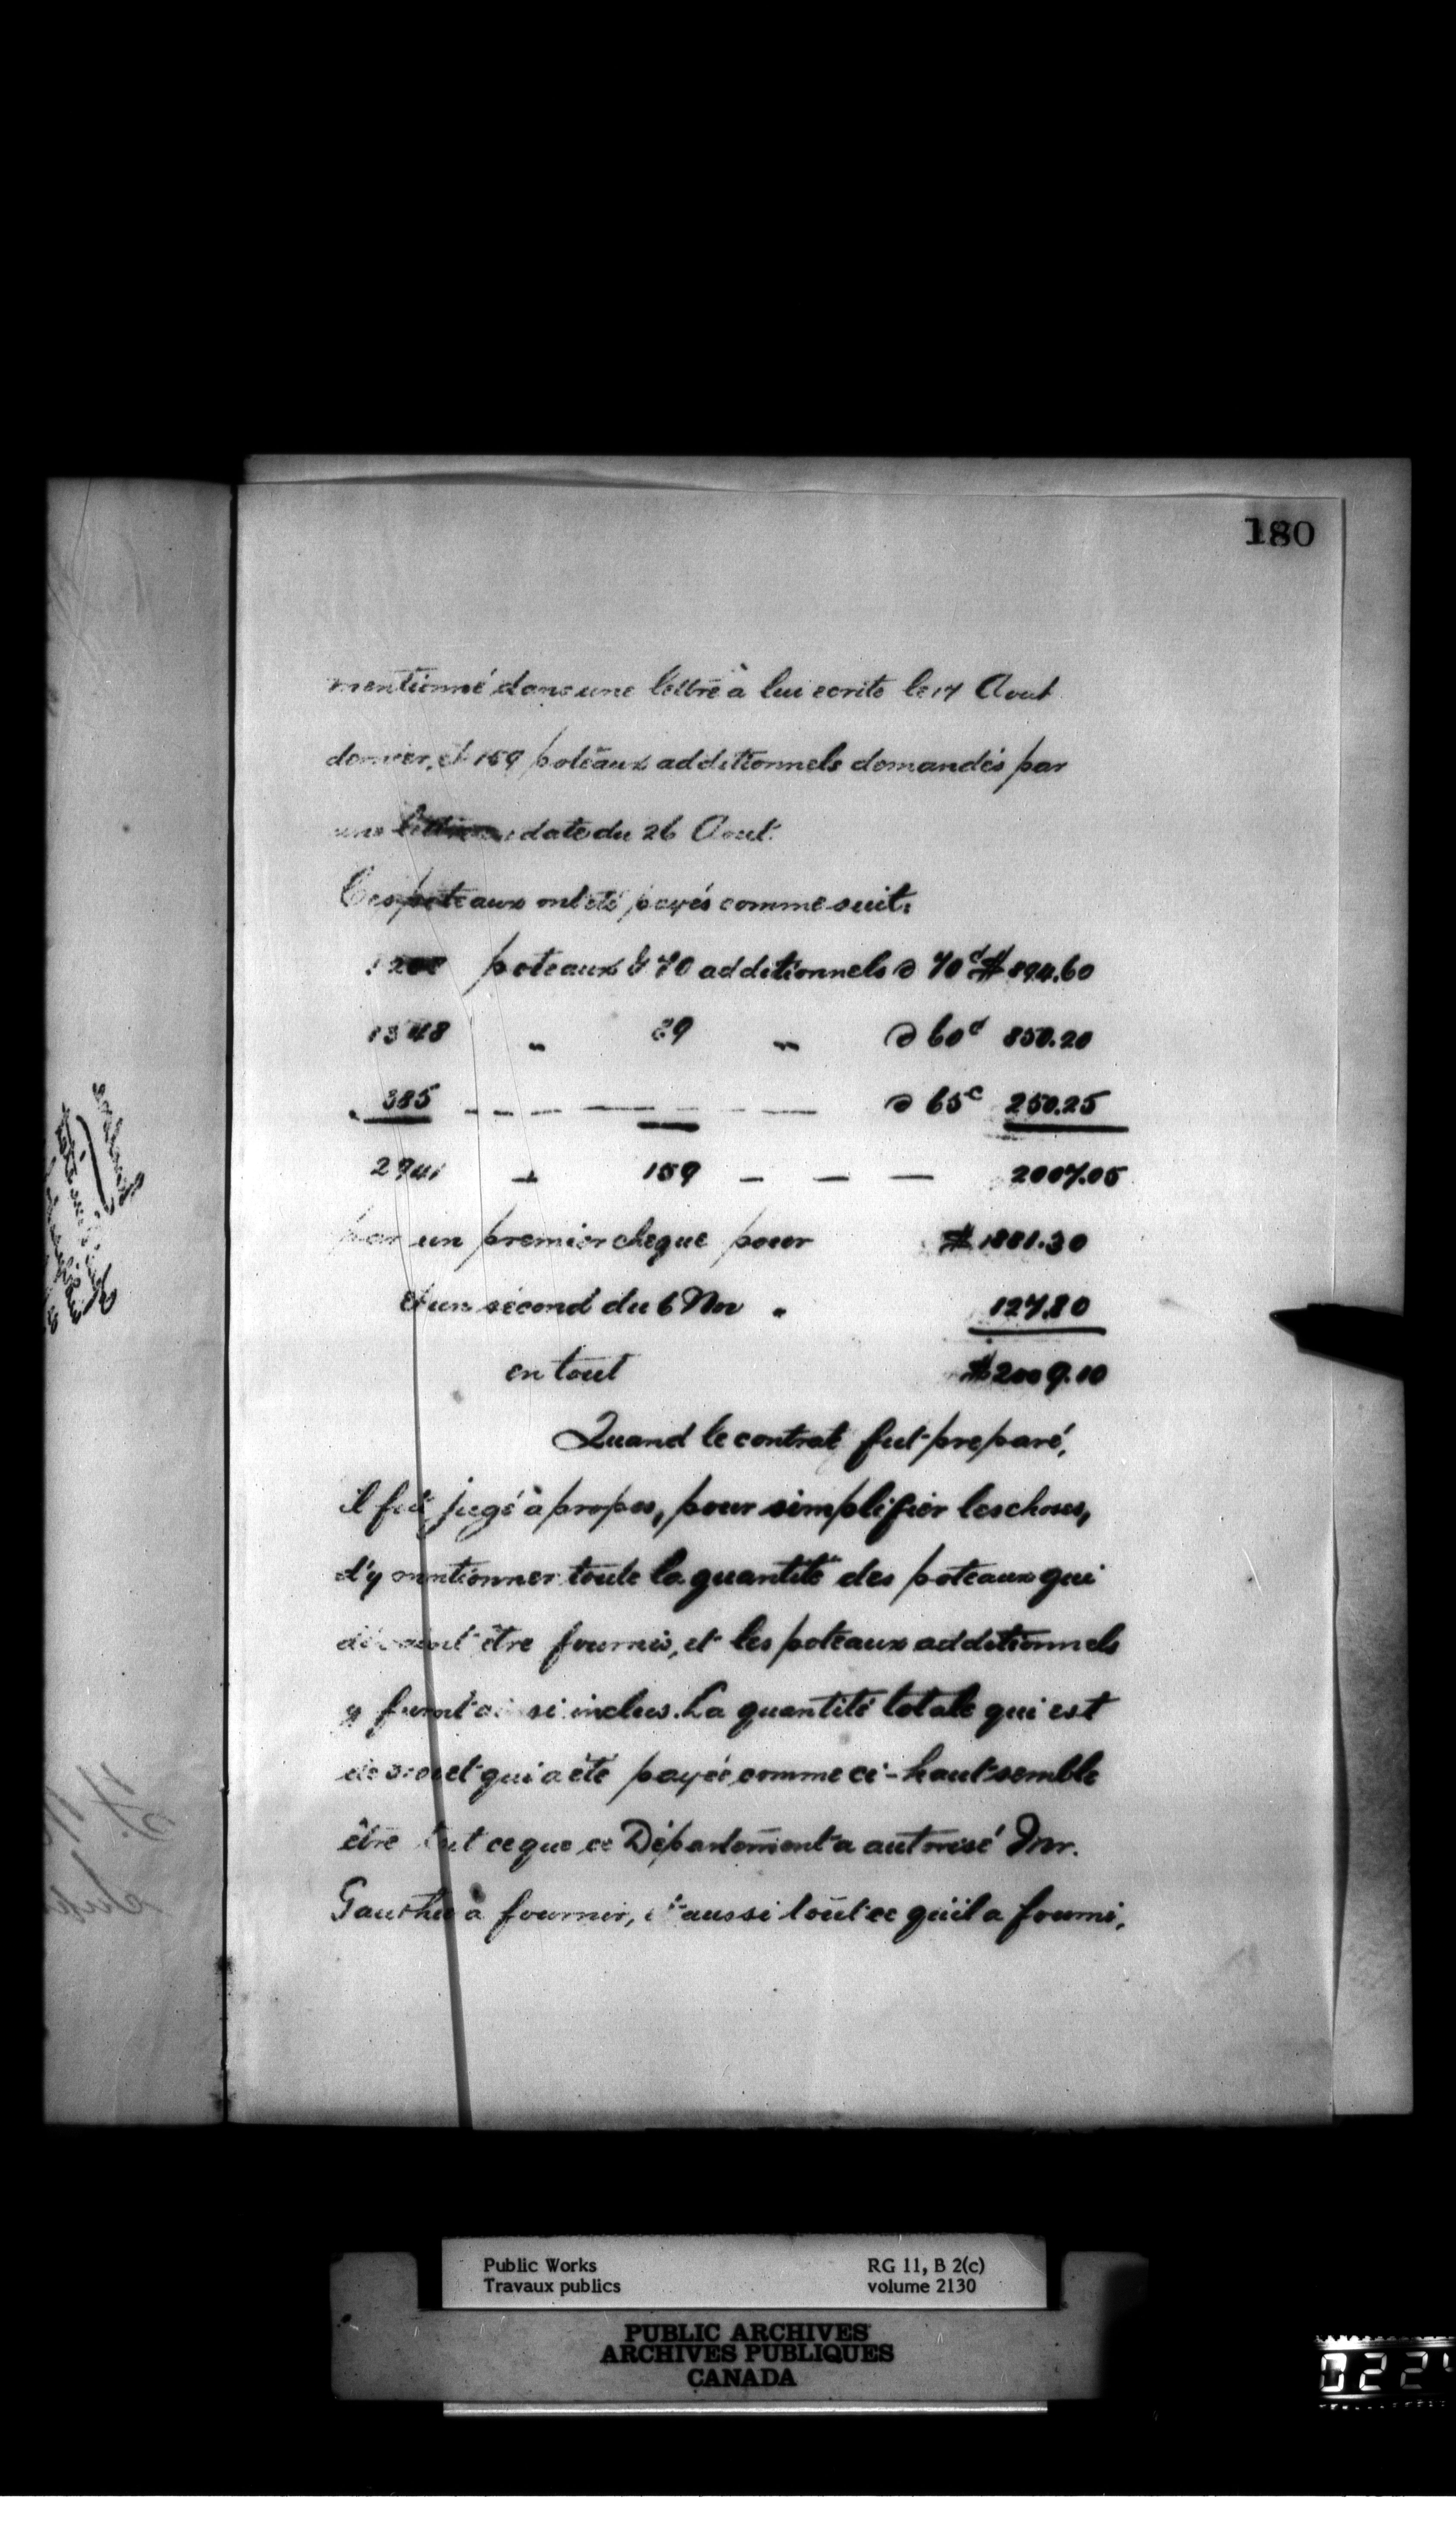 180
mentionné dans une lettre à lui ecrite le 17 Aout
dernier, et 159 poteaux additionnels demandés par
une date du 26 Aout.
Ces poteaux ont été payés comme suit.
poteaux & 70 additionnels @ 70c $ 894.60
1348 " " @ 60c 850.20
385 - - - — — - - — @ 65c 250.25
2941 " 159 - — — 2007.05
par un premier cheque pour $ 1881.30
et un sécond du 6 Nov " 127.80
en tout $ 2009.10
Quand le contrat fut preparé,
il fut jugé à propos, pour simplifier les choses,
d'y mentionner toute la quantité des poteaux qui
devaient être fournis, et les poteaux additionnels
y furent ainsi inclus. La quantité totale qui est
de et qui a été payée comme ci-haut semble
être tout ce que ce Département a autorisé Mr.
Gauthier à fournir, et aussi tout ce qu'il a fourni,
Public Works
Travaux publics
RG 11, B 2(c)
volume 2130
PUBLIC ARCHIVES
ARCHIVES PUBLIQUES
CANADA